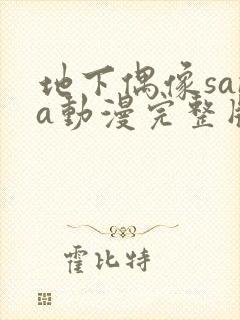 地下偶像sa
a動漫完整
霍比特